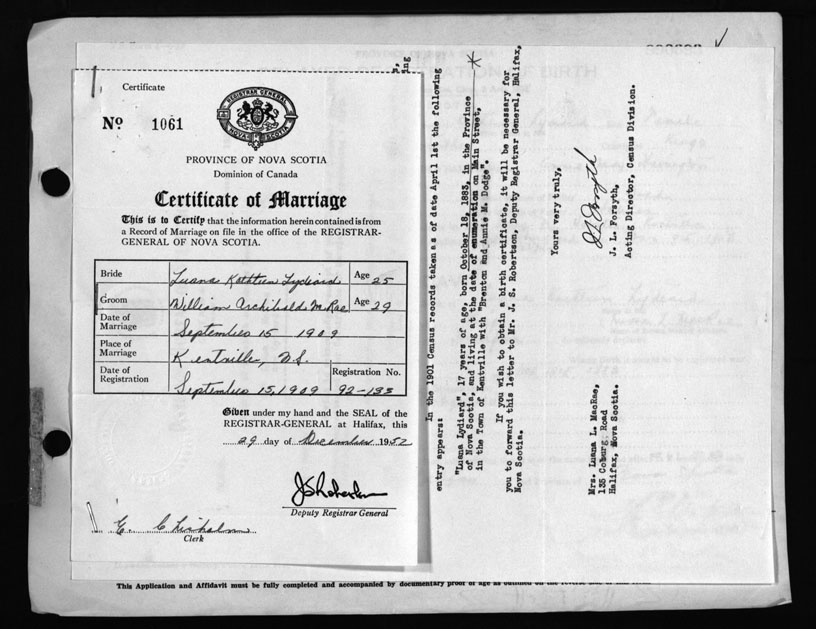 Certificate
No 1061
REGISTRAR GENERAL
NOVA SCOTIA
PROVINCE OF NOVA SCOTIA
Dominion of Canada
Certificate of Marriage
This is to Certify that the information herein contained is from
a Record of Marriage on file in the office of the REGISTRAR-
GENERAL OF NOVA SCOTIA.
Bride Luana Kathleen Lydiard Age 25
Groom William Archibald McRae Age 29
Date of
Marriage September 15 1909
Place of
Marriage Kentville, N.S.
Date of
Registration September 15, 1909 Registration No.
92-133
Given under my hand and the SEAL of the
REGISTRAR-GENERAL at Halifax, this
29 day of December 1952
JSRobertson
Deputy Registrar General
E. Chisholm
Clerk
In the 1901 Census records taken as of date April 1st the following
entry appears:
*
"Luana Lydiard", 17 years of age, born October 18, 1883, in the Province
of Nova Scotia, and living at the date of enumeration on Main Street,
in the Town of Kentville with "Brenton and Annie M. Dodge".
If you wish to obtain a birth certificate, it will be necessary for
you to forward this letter to Mr. J. S. Robertson, Deputy Registrar General, Halifax,
Nova Scotia.
Yours very truly,
JL Forsyth
J. L. Forsyth,
Acting Director, Census Division.
Mrs. Luana L. MacRae,
135 Coburg Road
Halifax, Nova Scotia.
This Application and Affidavit must be fully completed and accompanied by documentary proof of age as outlined on the reverse